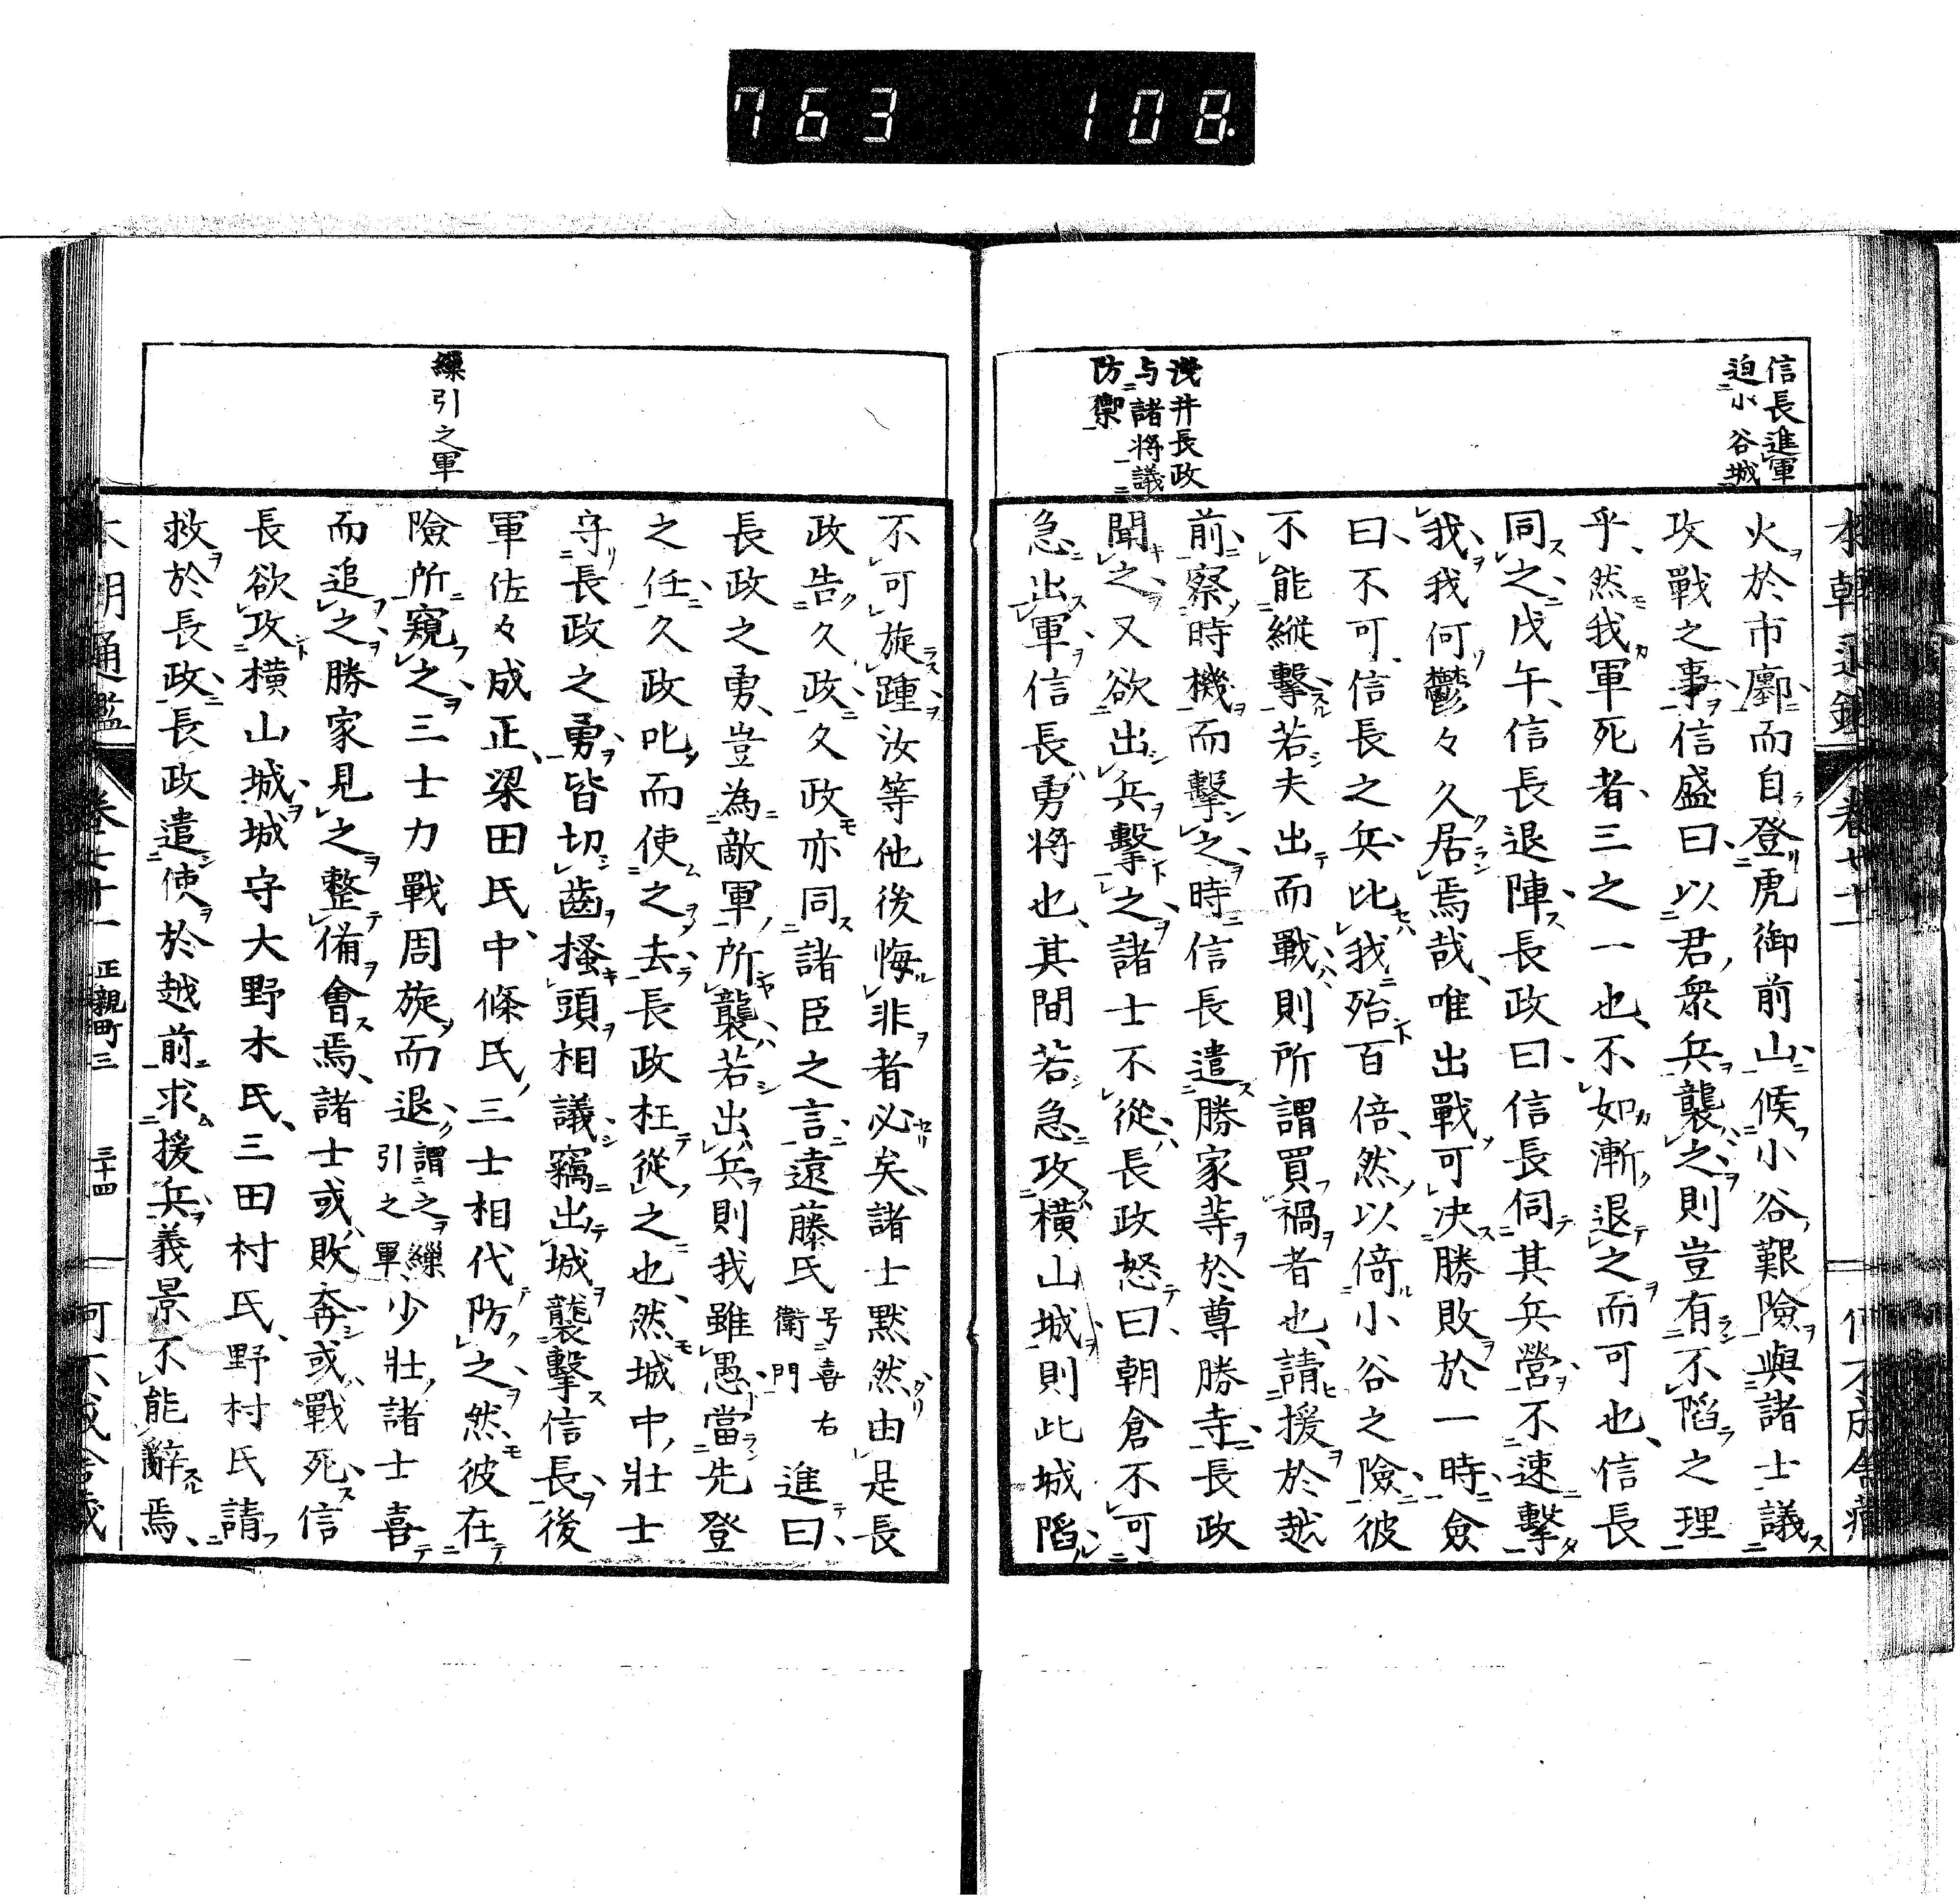 763 108
信長進軍
迫小谷城
浅井長政
与諸将議
防禦
火於市鄽而自登虎御前山候小谷艱險與諸士議
攻戰之事信盛曰以君衆兵襲之則豈有不陷之理
乎然我軍死者三之一也不如漸退之而可也信長
同之戊午信長退陣長政曰信長伺其兵營不速擊
我我何鬱々久居焉哉唯出戰可决勝敗於一時僉
曰不可信長之兵比我殆百倍然以倚小谷之險彼
不能縱擊若夫出而戰則所謂買禍者也請援於越
前察時機而擊之時信長遣勝家等於尊勝寺長政
聞之又欲出兵擊之諸士不從長政怒曰朝倉不可
急出軍信長勇将也其間若急攻横山城則此城陷
繰引之軍
不可旋踵汝等他後悔非者必矣諸士默然由是長
政告久政久政亦同諸臣之言遠藤氏号喜右衛門進曰
長政之勇豈為敵軍所襲若出兵則我雖愚當先登
之任久政叱而使之去長政枉從之也然城中壮士
守長政之勇皆切齒搔頭相議竊出城襲擊信長後
軍佐々成正梁田氏中條氏三士相代防之然彼在
險所窺之三士力戰周旋而退謂之繰引之軍少壮諸士喜
而追之勝家見之整俻會焉諸士或敗奔或戰死信
長欲攻横山城城守大野木氏三田村氏野村氏請
救於長政長政遣使於越前求援兵義景不能辭焉
本朝通鑑 卷七十一 正親町三 三十四